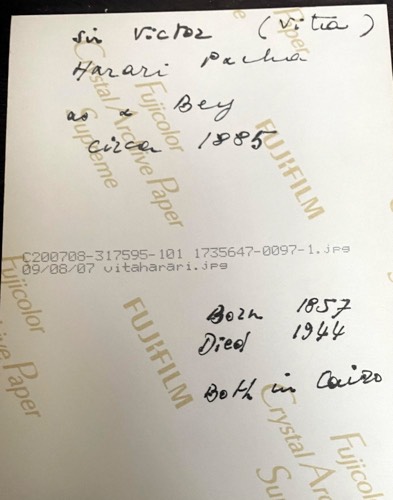 Sir Victor (Vita)
Harari Pacha
as a Bey
circa 1885
C200708-317595-101 1735647-0097-1.jpg
09/08/07 vitaharari.jpg
Born 1857
Died 1944
Both in Cairo
Fujicolor
Crystal Archive Paper
Supreme
FUJIFILM
FUJIFILM
Fujicolor
Archive Paper
Fujicolor
Crystal Ar
Su